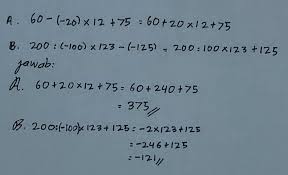 A. 60 - (-20) × 12 + 75 = 60 + 20 × 12 + 75
B. 200 : (-100) × 123 - (-125) = 200 : 100 × 123 + 125
jawab:
A. 60 + 20 × 12 + 75 = 60 + 240 + 75
= 375 //
B. 200 : (-100) × 123 + 125 = -2 × 123 + 125
= -246 + 125
= -121 //